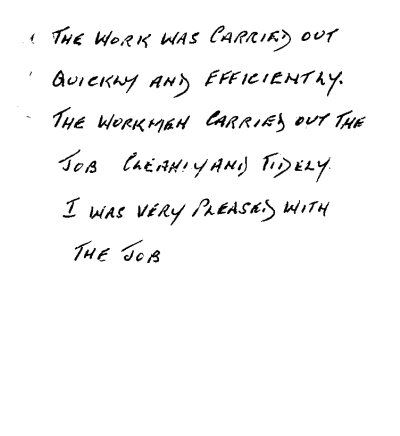 THE WORK WAS CARRIED OUT
QUICKLY AND EFFICIENTLY.
THE WORKMEN CARRIED OUT THE
JOB CLEANLY AND TIDELY.
I WAS VERY PLEASED WITH
THE JOB